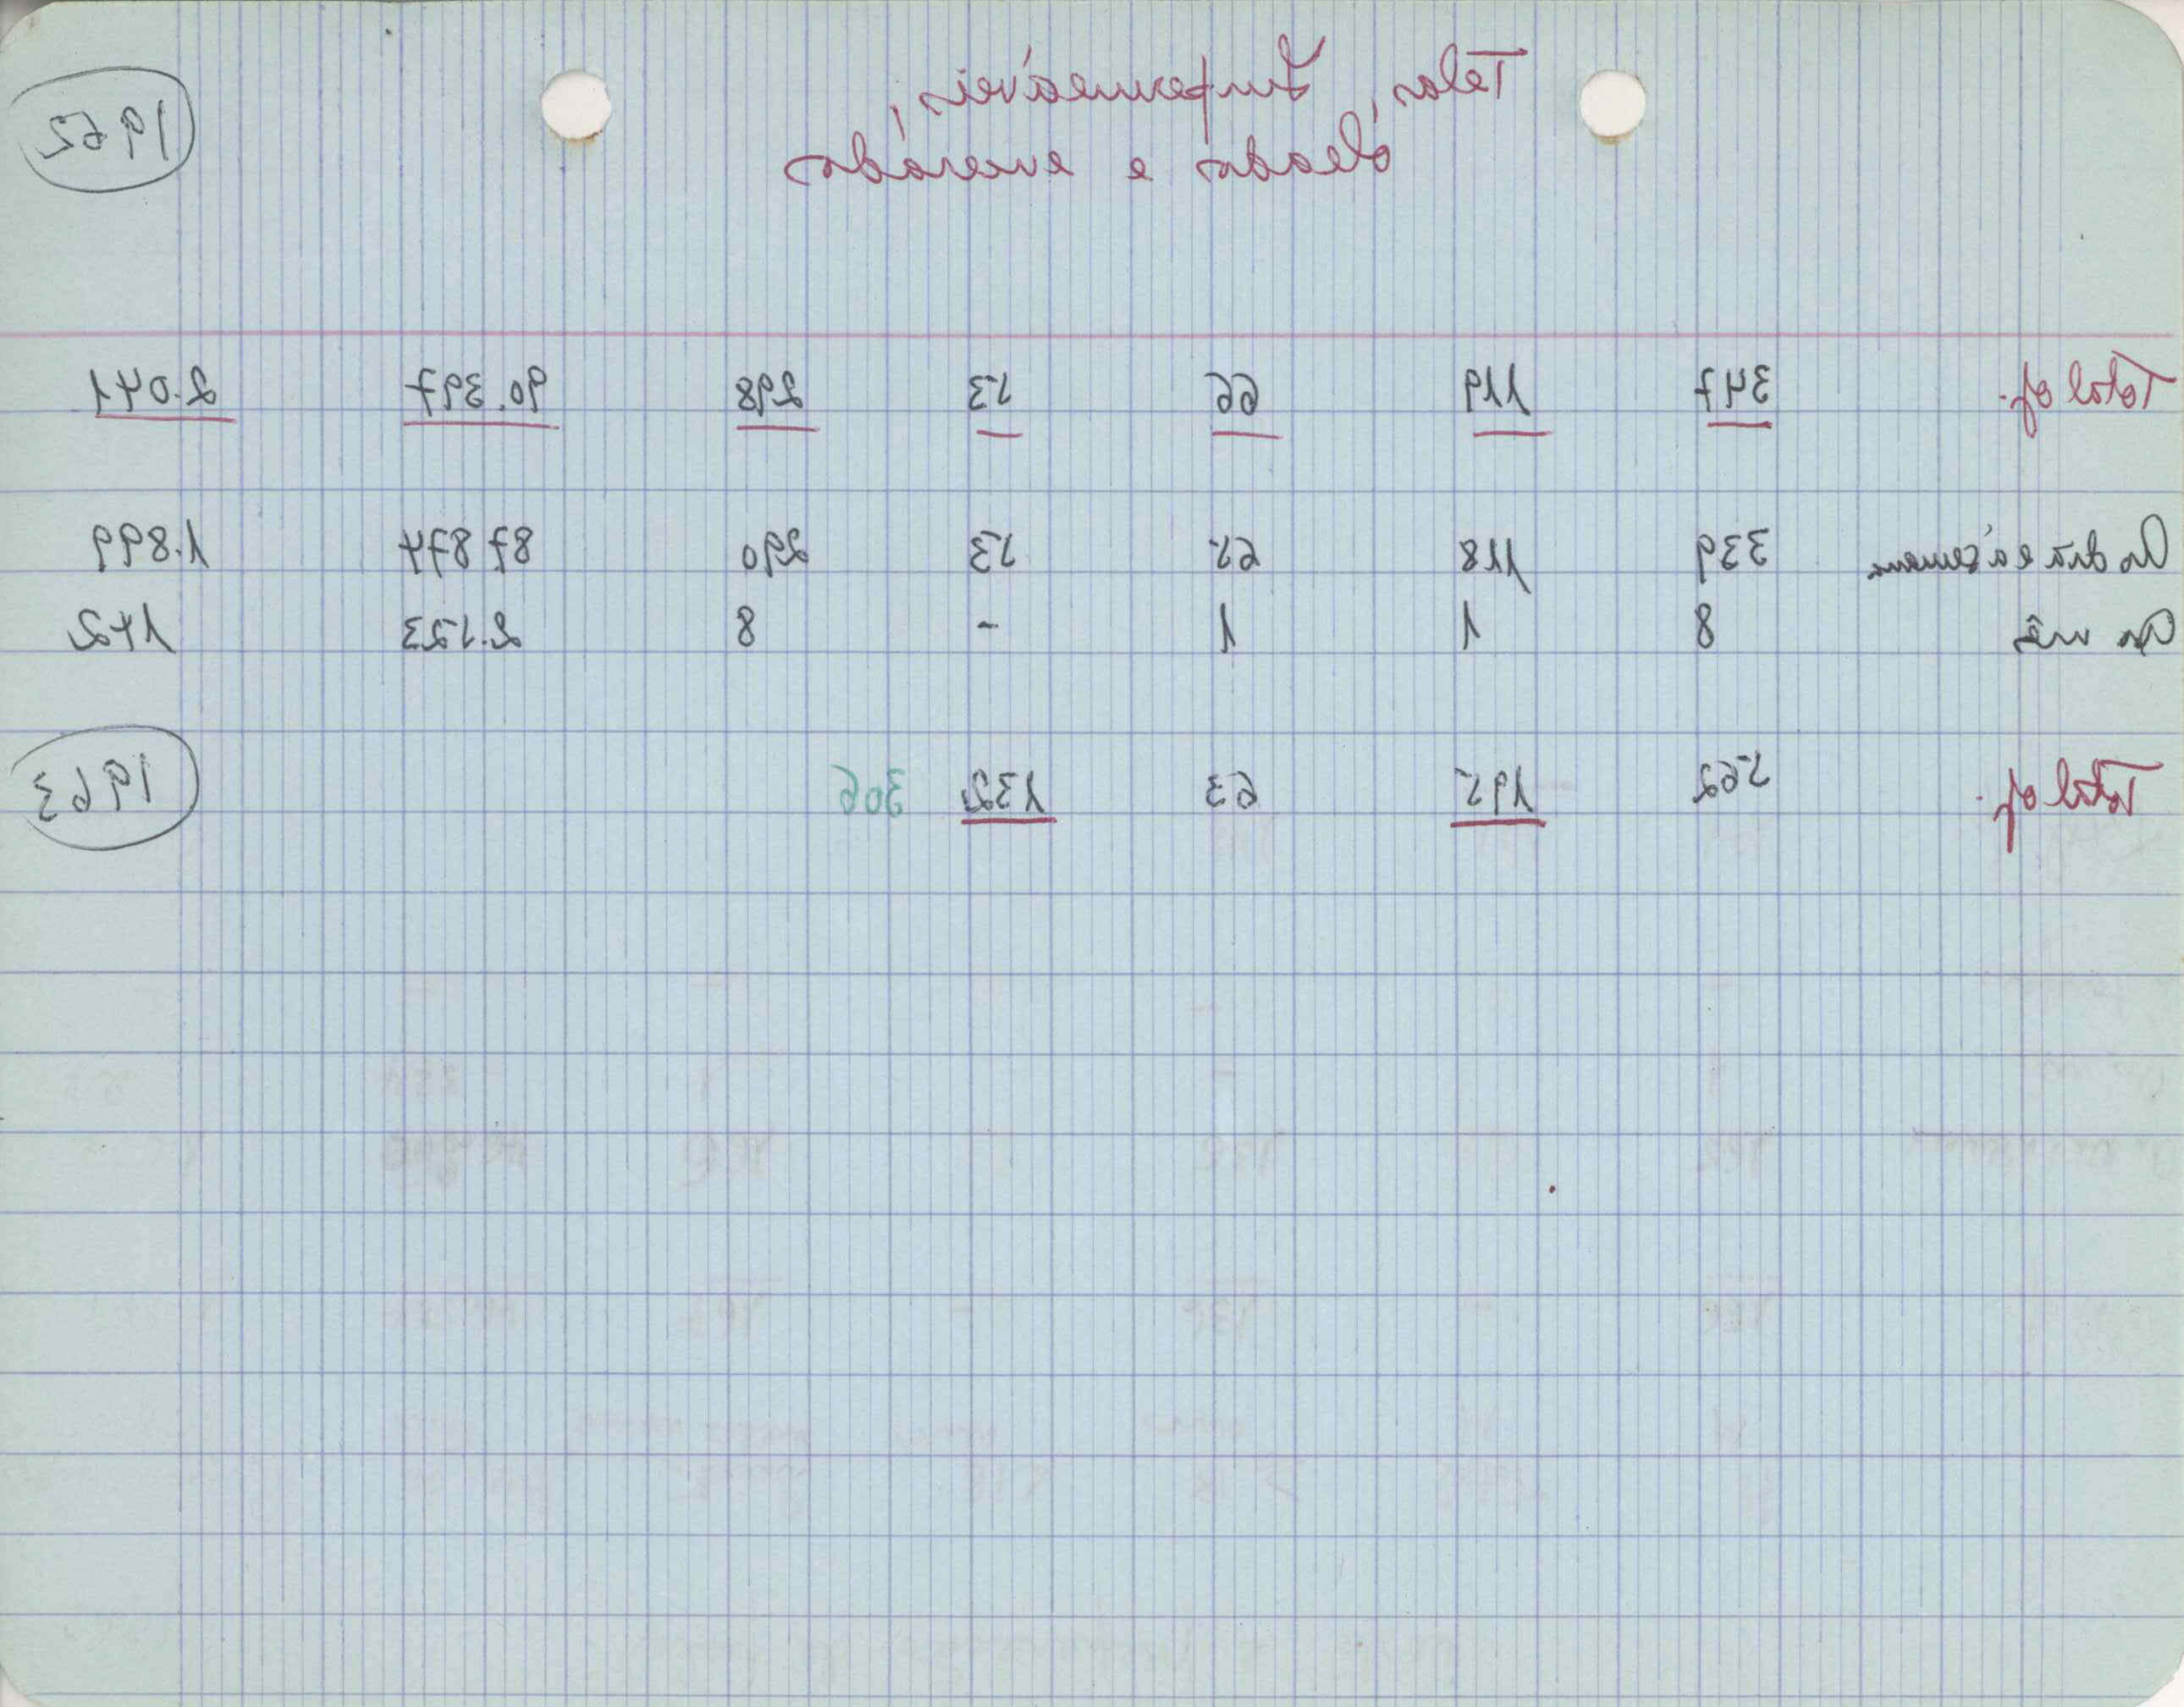 Telas, Impermeáveis,
oleados e encerados
1962
Total of. 347 119 66 53 298 90.397 2.041
Ao dia e à semana 339 118 65 53 290 87 874 1.899
Ao mês 8 1 1 - 8 2.523 142
Total of. 562 195 63 132 306 1963